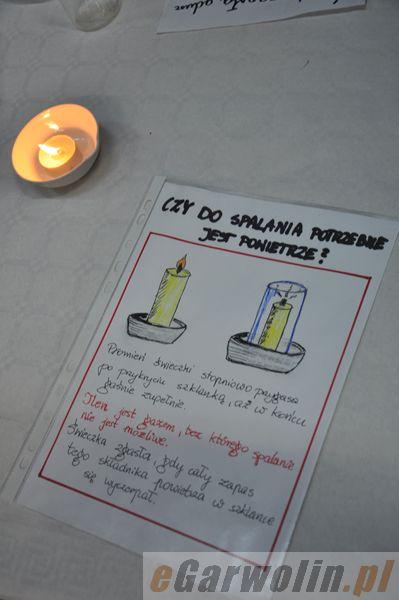 CZY DO SPALANIA POTRZEBNE
JEST POWIETRZE?
Płomień świeczki stopniowo przygasa
po przykryciu szklanką, aż w końcu
gaśnie zupełnie.
Tlen jest gazem, bez którego spalanie
nie jest możliwe.
Świeczka zgasła, gdy cały zapas
tego składnika powietrza w szklance
się wyczerpał.
eGarwolin.pl